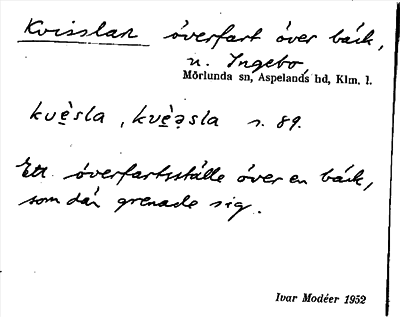 Kvisslan överfart över bäck,
n. Ingebo,
Mörlunda sn, Aspelands hd, Klm. l.
kvè̱sla, kvè̱əsla s. 89.
Ett överfartsställe över en bäck,
som där grenade sig.
Ivar Modéer 1952